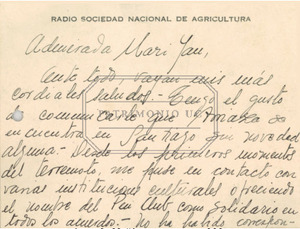 RADIO SOCIEDAD NACIONAL DE AGRICULTURA
Admirada Mari Yan,
Ante todo, vayan mis más
cordiales saludos.- Tengo el gusto
de comunicarle que Amaza se
encuentra en Santiago sin novedad
alguna.- Desde los primeros momentos
del terremoto, me puse en contacto con
varias instituciones culturales ofreciendo
el nombre del Pen Club, como solidario en
todos los acuerdos.- No ha habido
PATRIMONIO UC